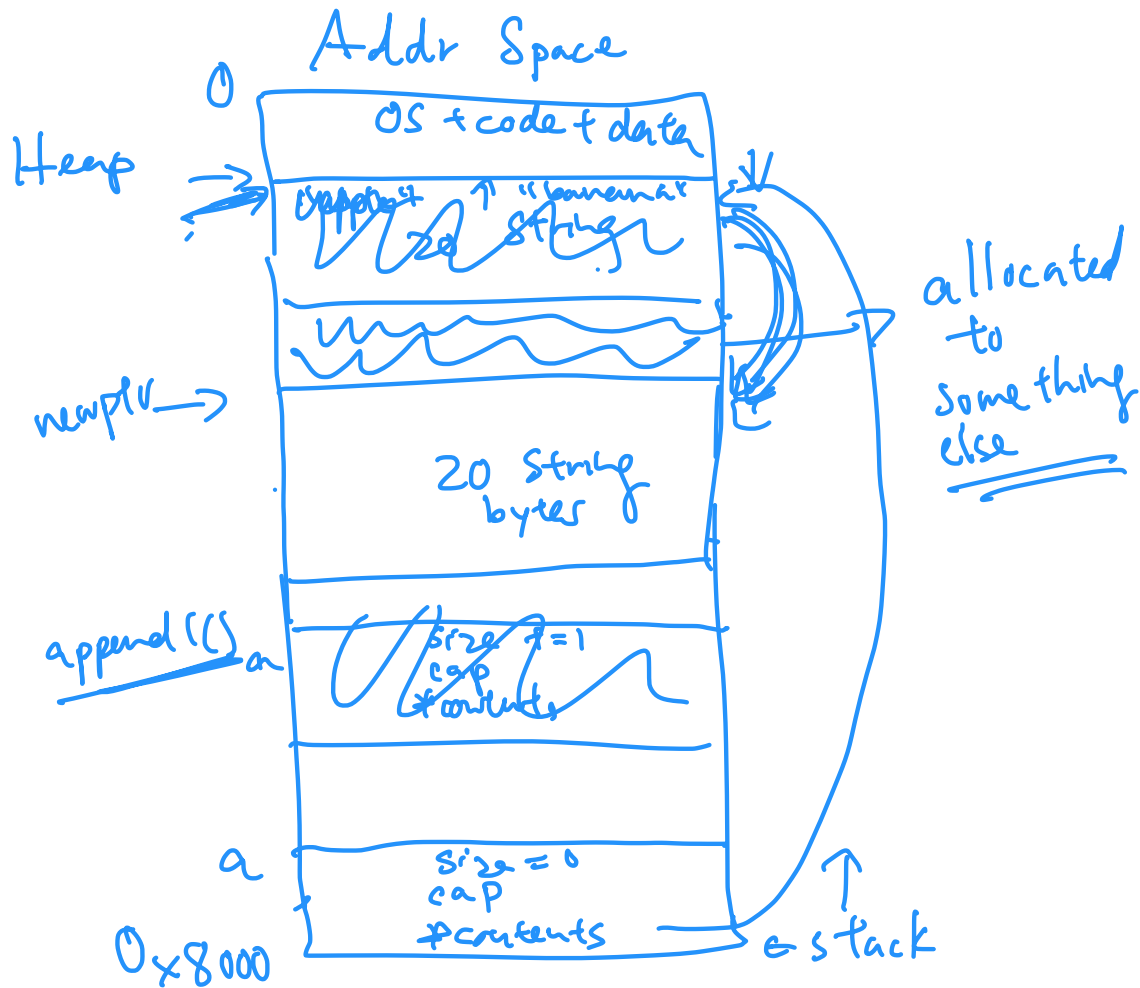 Addr Space
0
OS + code + data
Heap
"apple" "banana"
20 string
allocated
to
something
else
newptr
20 string
bytes
append(()
a
size += 1
cap
*contents
a
size = 0
cap
*contents
0x8000
stack